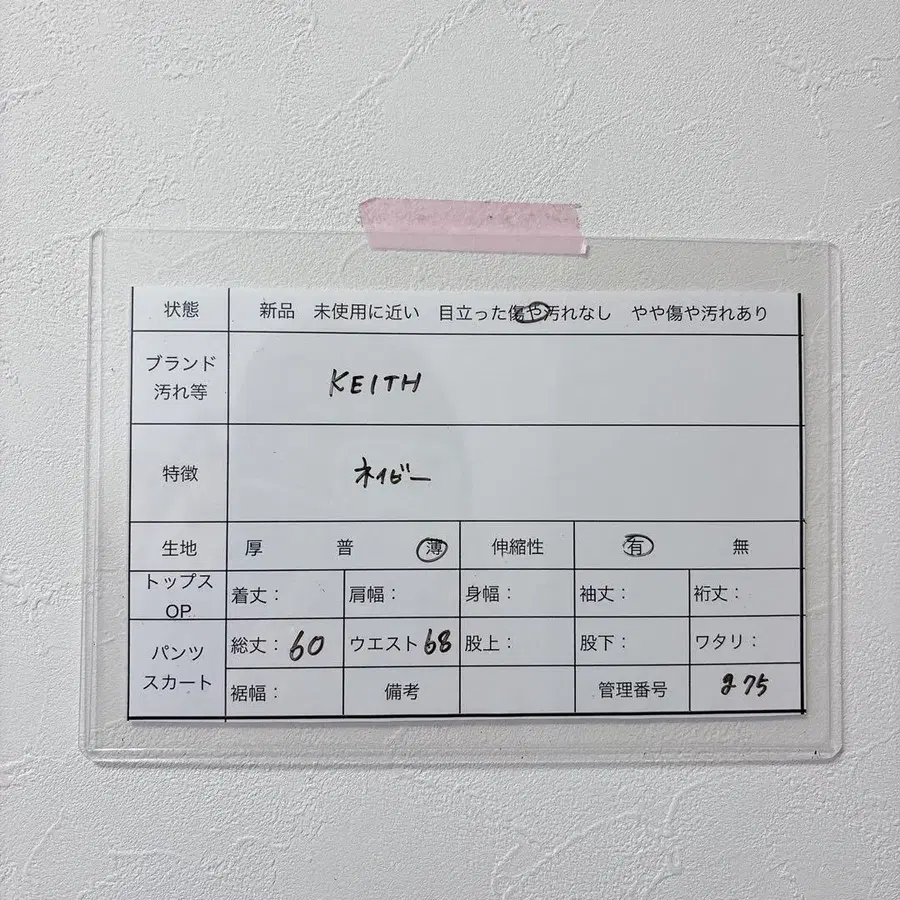 状態 新品 未使用に近い 目立った傷や汚れなし やや傷や汚れあり
ブランド
汚れ等
KEITH
特徴 ネイビー
生地 厚 普 薄 伸縮性 有 無
トップス
OP
着丈: 肩幅: 身幅: 袖丈: 裄丈:
パンツ
スカート
総丈:60 ウエスト68 股上: 股下: ワタリ:
裾幅: 備考 管理番号 275